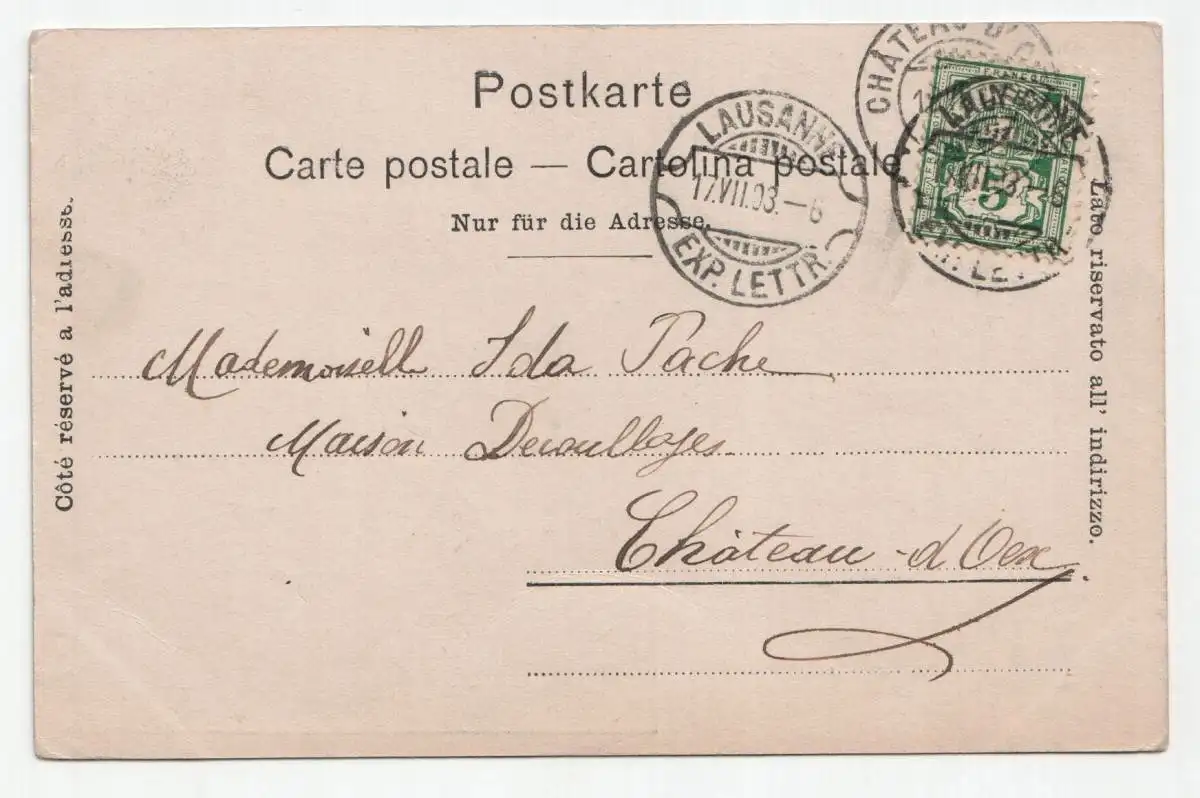 Postkarte
Carte postale — Cartolina postale
Nur für die Adresse.
LAUSANNE
17.VII.03.—6
EXP. LETTR.
CHÂTEAU D'
FRANCO
5
Côté réservé à l'adresse.
Lato riservato all' indirizzo.
Mademoiselle Ida Pache
Maison
Château-d'Oex